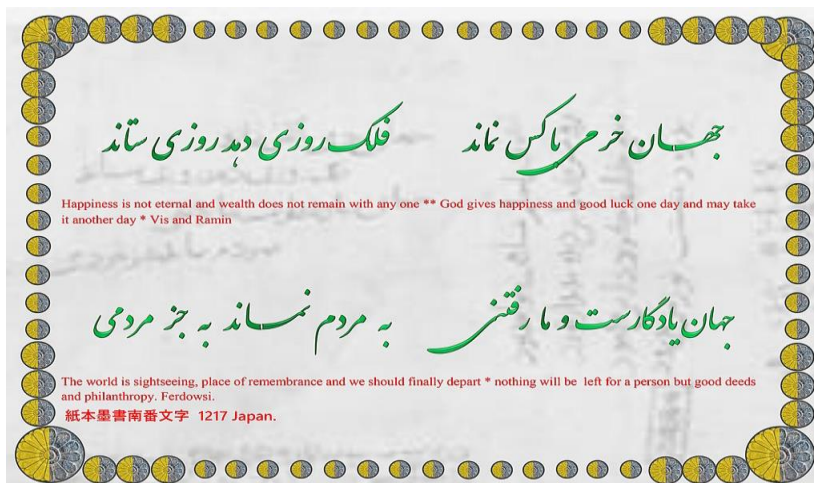 جهان خرمی با کس نماند فلک روزی دهد روزی ستاند
Happiness is not eternal and wealth does not remain with any one ** God gives happiness and good luck one day and may take
it another day * Vis and Ramin
جهان یادگارست و ما رفتنی به مردم نماند به جز مردمی
The world is sightseeing, place of remembrance and we should finally depart * nothing will be left for a person but good deeds
and philanthropy. Ferdowsi.
紙本墨書南番文字 1217 Japan.